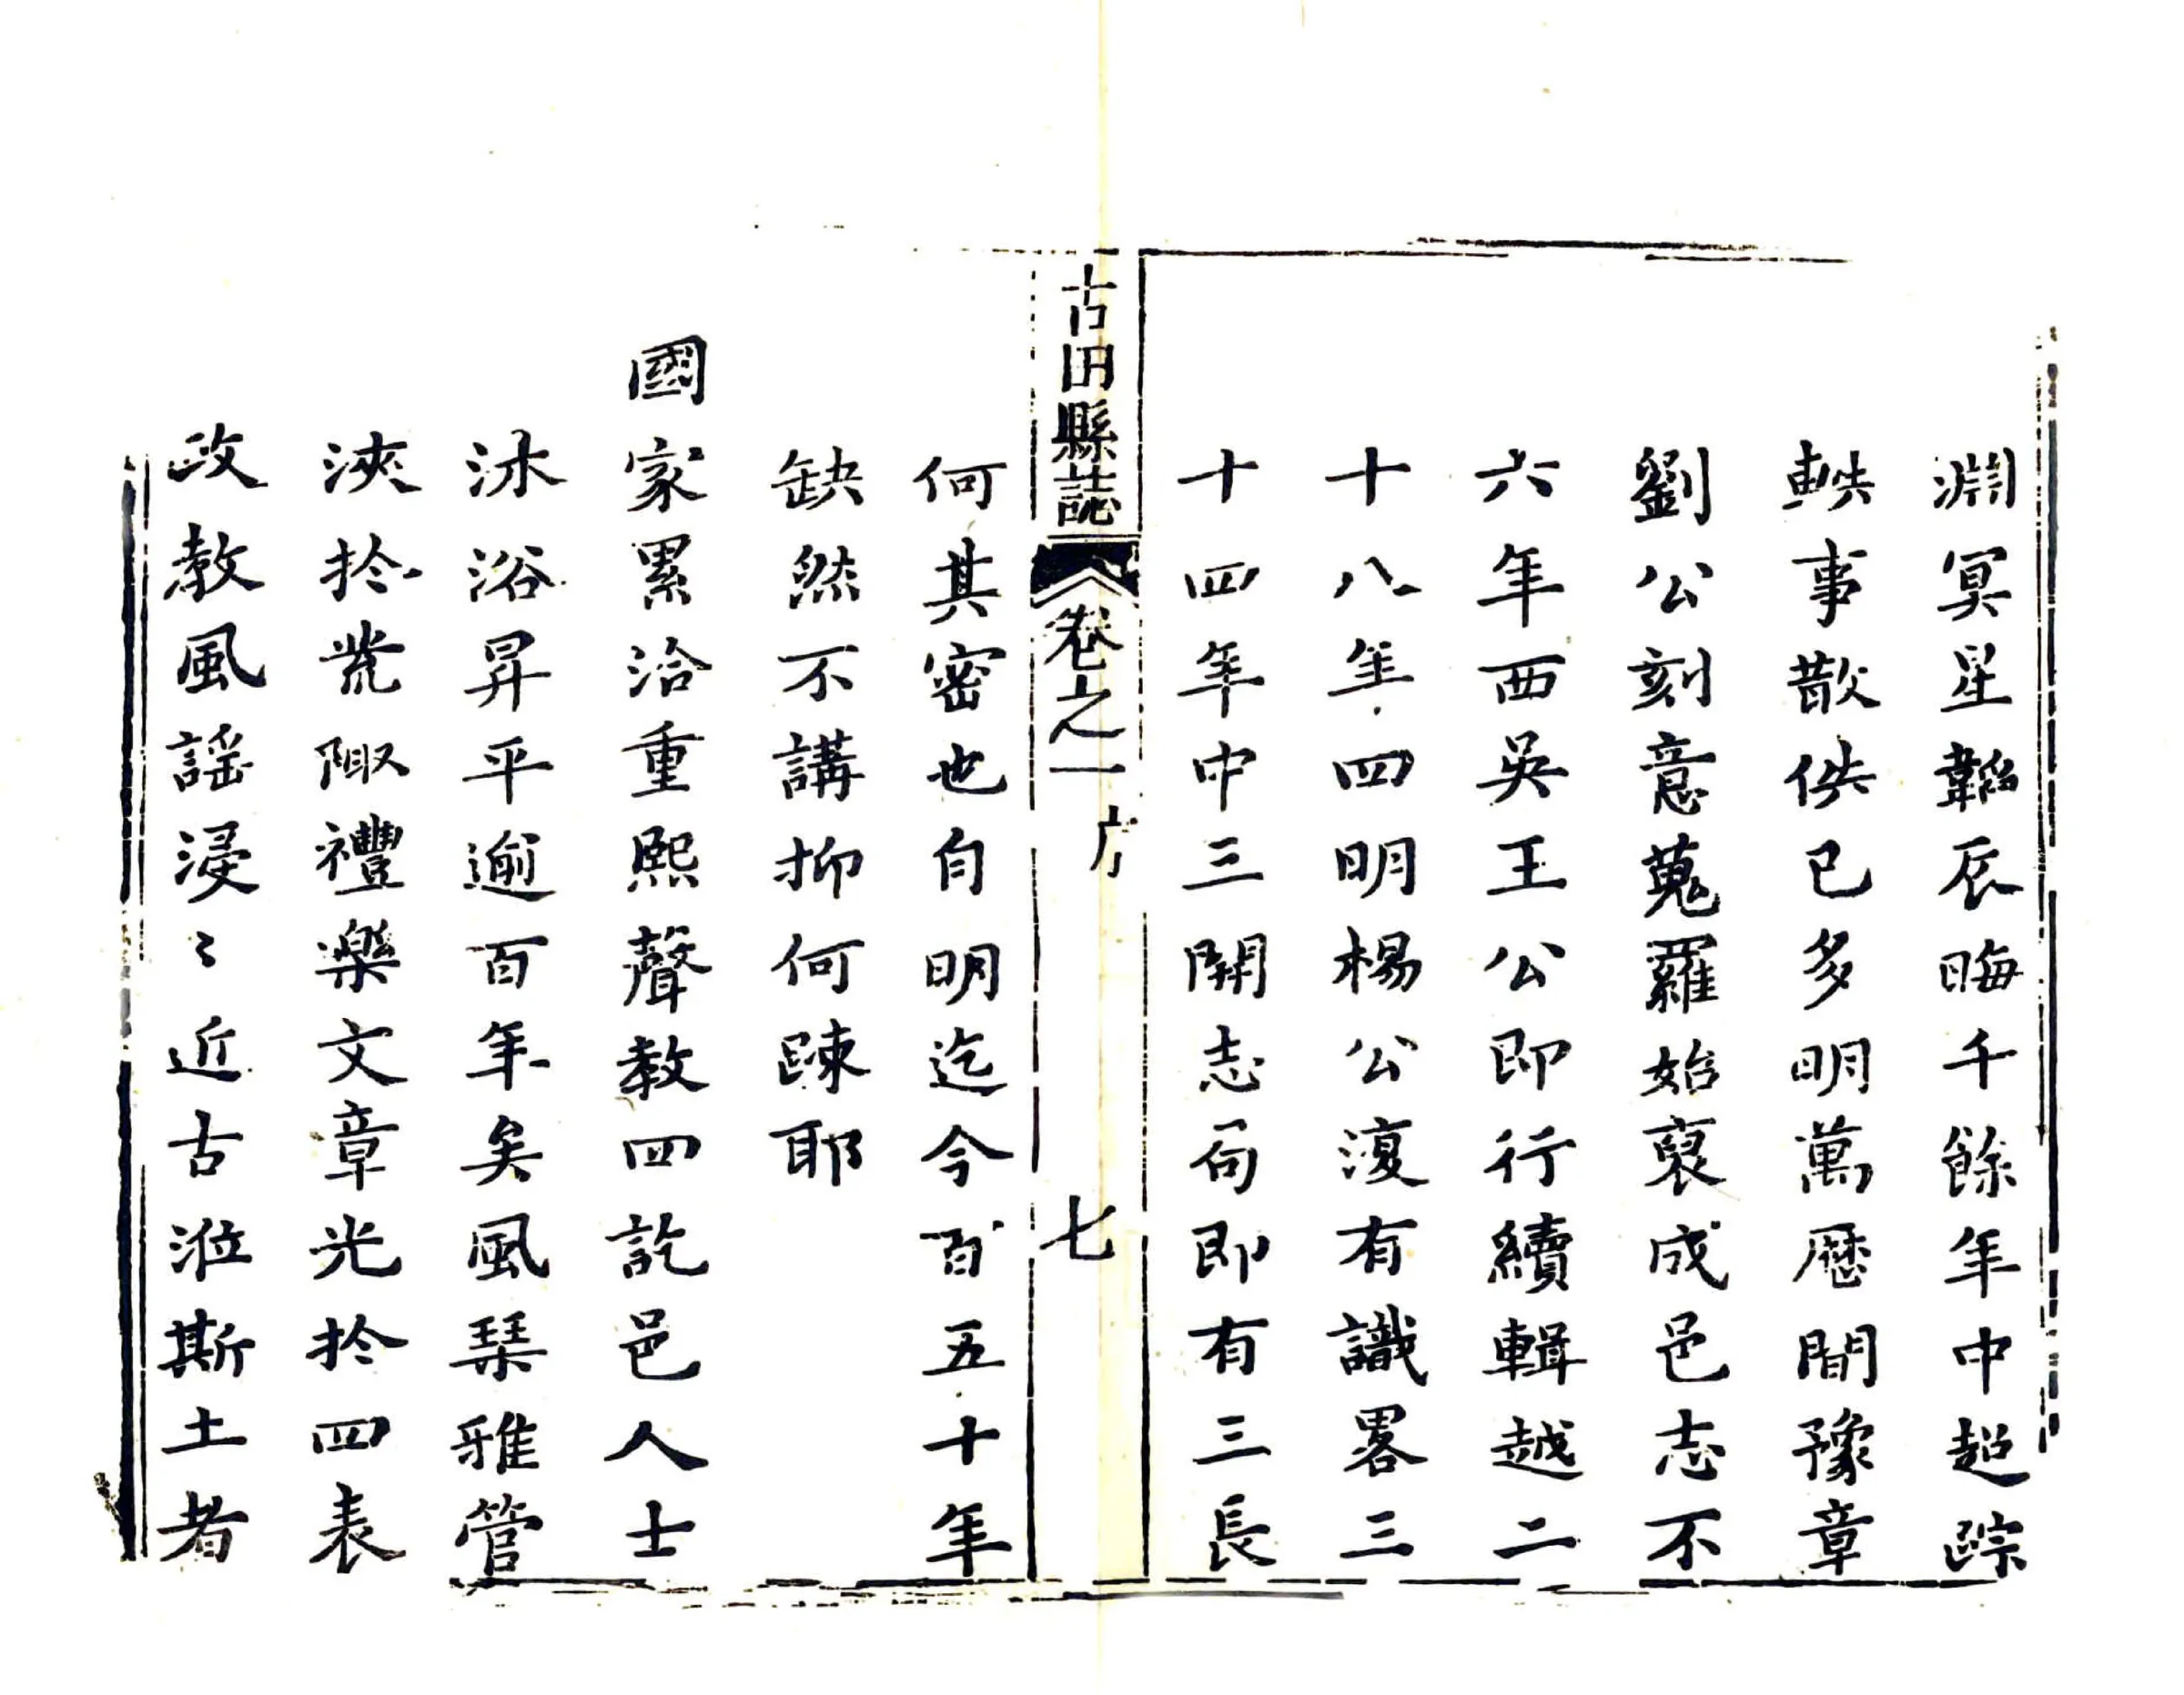 淵冥星韜辰晦千餘年中超踪
軼事散佚已多明萬曆間豫章
劉公刻意蒐羅始裒成邑志不
六年西吳王公即行續輯越二
十八年四明楊公復有識畧三
十四年中三開志局即有三長
古田縣誌 卷之一 序 七
何其密也自明迄今百五十年
缺然不講抑何踈耶
國家累洽重熙聲教四訖邑人士
沐浴昇平逾百年矣風琹雅管
浹於荒陬禮樂文章光於四表
政教風謡浸〻近古涖斯土者